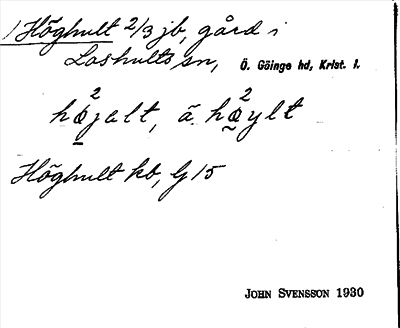 1 Höghult 2/3 jb, gård i
Loshults sn, Ö. Göinge hd, Krist. l.
hø̠²jalt, ä. hø̠²ylt
Höghult kb, G 15
JOHN SVENSSON 1930